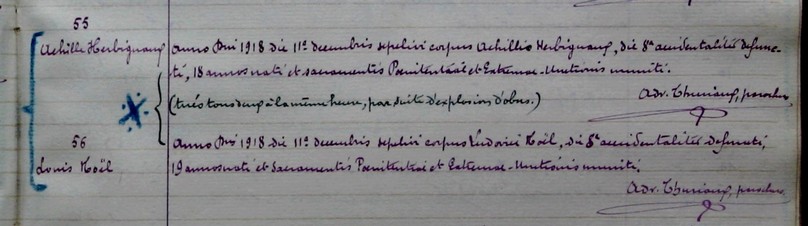 55
Achille Herbignaux
Anno Dni 1918 die 11a decembris sepelivi corpus Achillis Herbignaux, die 8a accidentaliter defunc-
ti, 18 annos nati et sacramentis Poenitentiae et Extremae-Unctionis muniti.
Adv. Thuriaux, parochus
(tués tous deux à la même heure, par suite d'explosion d'obus.)
56
Louis Noël
Anno Dni 1918 die 11a decembris sepelivi corpus Ludovici Noël, die 8a accidentaliter defuncti,
19 annos nati et sacramentis Poenitentiae et Extremae-Unctionis muniti.
Adv. Thuriaux, parochus